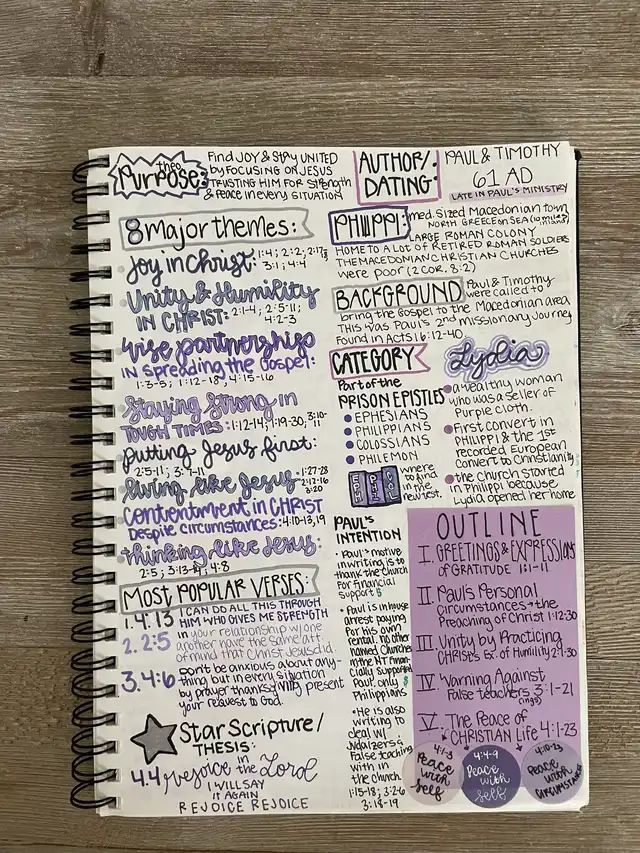 theo
Purpose:
Find JOY & Stay UNITED
by FOCUSING ON JESUS
TRUSTING HIM FOR Strength
& Peace in every SITUATION
8 major themes:
Joy in Christ: 1:4; 2:2; 2:17;
3:1; 4:4
Unity & Humility
IN CHRIST: 2:1-4; 2:5-11;
4:2-3
wise partnerships
IN spreading the Gospel:
1:3-5; 1:12-18; 4:15-16
Staying Strong in
TOUGH TIMES: 1:12-14; 1:19-30; 3:10-
11
putting Jesus first:
2:5-11; 3:7-11
living like Jesus
1:27-28
2:12-16
3:20
Contentment in CHRIST
Despite circumstances: 4:10-13, 19
thinking like Jesus:
2:5; 3:13-14; 4:8
MOST POPULAR VERSES:
1. 4.13 I CAN DO ALL THIS THROUGH
HIM WHO GIVES ME STRENGTH
2. 2:5 in your relationship w/one
another have the same att.
of mind that Christ Jesus did.
3. 4:6 Don't be anxious about any-
thing but in every situation
by prayer thanksgiving present
your request to God.
Star Scripture/
THESIS:
4.4 rejoice in the Lord
I WILL SAY
IT AGAIN
REJOICE REJOICE
AUTHOR/
DATING:
PAUL & TIMOTHY
61 AD
LATE IN PAUL'S MINISTRY
PHILIPPI:
med. sized Macedonian town
NORTH GREECE on SEA (10 miles inland)
LARGE ROMAN COLONY
HOME TO A LOT OF RETIRED ROMAN SOLDIERS
THE MACEDONIAN CHRISTIAN CHURCHES
were poor (2 COR. 8:2)
BACKGROUND
Paul & Timothy
were called to
bring the Gospel to the Macedonian area
THIS WAS PAUL'S 2nd missionary Journey
Found in Acts 16:12-40
CATEGORY
Part of the
PRISON EPISTLES
EPHESIANS
PHILIPPIANS
COLOSSIANS
PHILEMON
where
to find
in the
new test.
Lydia
a wealthy woman
who was a seller of
Purple cloth.
First convert in
PHILIPPI & the 1st
recorded European
convert to Christianity
the church started
in Philippi because
Lydia opened her home
PAUL'S
INTENTION
Paul's motive
in writing is to
thank the church
for financial
support
Paul is in house
arrest paying
for his own
rental. no other
named Churches
in the NT finan-
cially supported
Paul, only
Philippians
He is also
writing to
deal w/
Judaizers &
False teaching
with in
the church
1:15-18; 3:2-6
3:18-19
OUTLINE
I. GREETINGS & EXPRESSIONS
of GRATITUDE 1:1-11
II. Paul's Personal
circumstances + the
Preaching of Christ 1:12-30
III. Unity by Practicing
CHRIST'S Ex. of Humility 2:1-30
IV. Warning Against
False teachers 3:1-21
(ings)
V. The Peace of
CHRISTIAN Life 4:1-23
4:1-3
Peace
with
self
4:4-9
Peace
with
self
4:10-23
Peace
with
CIRCUMSTANCE